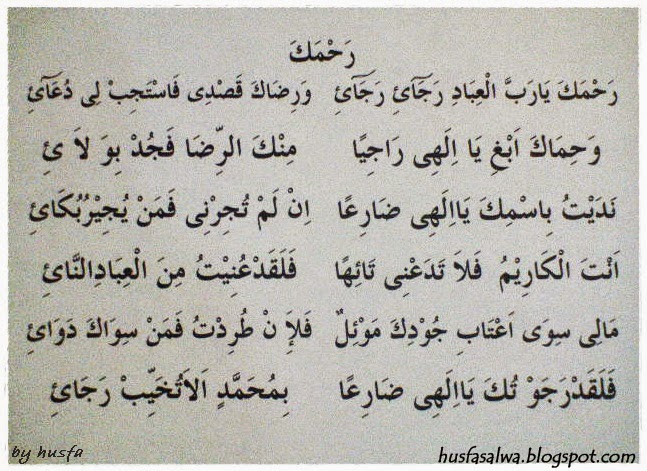 رَحْمَكَ
رَحْمَكَ يَارَبَّ الْعِبَادِ رَجَآئِ رَجَآئِ وَرِضَاكَ قَصْدِى فَاسْتَجِبْ لِى دُعَآئِ
وَحِمَاكَ اَبْغِ يَا اِلَهِى رَاجِيًا مِنْكَ الرِّضَا فَجُدْ بِوَ لاَ ئِ
نَدَيْتُ بِاسْمِكَ يَااِلَهِى ضَارِعًا اِنْ لَمْ تُجِرْنِى فَمَنْ يُجِيْرُبُكَائِ
اَنْتَ الْكَارِيْمُ فَلاَ تَدَعْنِى تَائِهًا فَلَقَدْعُنِيْتُ مِنَ الْعِبَادِالنَّائِ
مَالِى سِوَى اَعْتَابِ جُوْدِكَ مَوْئِلٌ فَلَإَ نْ طُرِدْتُ فَمَنْ سِوَاكَ دَوَائِ
فَلَقَدْرَجَوْ تُكَ يَااِلَهِى ضَارِعًا بِمُحَمَّدٍ اَلاَتُخَيِّبْ رَجَائِ
by husfa
husfasalwa.blogspot.com